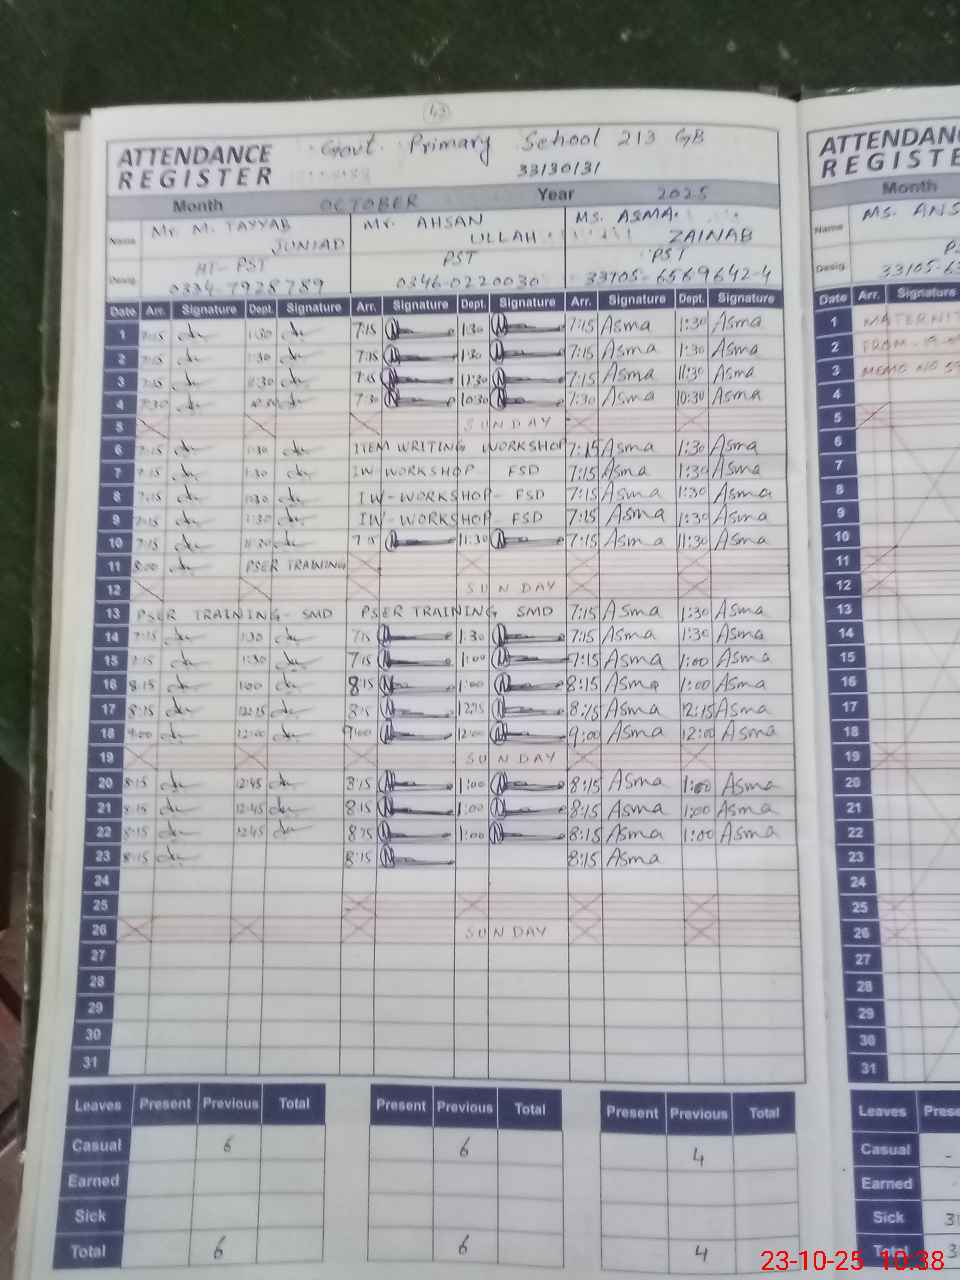 42
ATTENDANCE REGISTER
Govt. Primary School 213 GB
33130131
Month OCTOBER Year 2025
Name Mr. M. TAYYAB JUNIAD Mr. AHSAN ULLAH MS. ASMA. ZAINAB
Desig. HT-PST PST PST
0334-7928789 0346-0220030 33105-6569642-4
Date Arr. Signature Dept. Signature Arr. Signature Dept. Signature Arr. Signature Dept. Signature
1 7:15 1:30 7:15 1:30 7:15 Asma 1:30 Asma
2 7:15 1:30 7:15 1:30 7:15 Asma 1:30 Asma
3 7:15 11:30 7:15 11:30 7:15 Asma 11:30 Asma
4 7:30 10:30 7:30 10:30 7:30 Asma 10:30 Asma
5 SUNDAY
6 7:15 1:30 ITEM WRITING WORKSHOP 7:15 Asma 1:30 Asma
7 7:15 1:30 IW WORKSHOP FSD 7:15 Asma 1:30 Asma
8 7:15 1:30 IW-WORKSHOP-FSD 7:15 Asma 1:30 Asma
9 7:15 1:30 IW-WORKSHOP-FSD 7:15 Asma 1:30 Asma
10 7:15 11:30 7:15 11:30 7:15 Asma 11:30 Asma
11 8:00 PSER TRAINING
12 SUNDAY
13 PSER TRAINING-SMD PSER TRAINING SMD 7:15 Asma 1:30 Asma
14 7:15 1:30 7:15 1:30 7:15 Asma 1:30 Asma
15 7:15 1:30 7:15 1:00 7:15 Asma 1:00 Asma
16 8:15 1:00 8:15 1:00 8:15 Asma 1:00 Asma
17 8:15 12:15 8:15 12:15 8:15 Asma 12:15 Asma
18 9:00 12:00 9:00 12:00 9:00 Asma 12:00 Asma
19 SUNDAY
20 8:15 12:45 8:15 1:00 8:15 Asma 1:00 Asma
21 8:15 12:45 8:15 1:00 8:15 Asma 1:00 Asma
22 8:15 12:45 8:15 1:00 8:15 Asma 1:00 Asma
23 8:15 8:15 8:15 Asma
24
25
26 SUNDAY
27
28
29
30
31
Leaves Present Previous Total Present Previous Total Present Previous Total
Casual 6 6 4
Earned
Sick
Total 6 6 4
ATTENDAN
REGISTE
Month
Name MS. ANS
Desig. 33105-6
Date Arr. Signature
1 MATERNIT
2 FROM-
3 MEMO NO
4
5
6
7
8
9
10
11
12
13
14
15
16
17
18
19
20
21
22
23
24
25
26
27
28
29
30
31
Leaves Prese
Casual -
Earned
Sick
Total
23-10-25 10:38